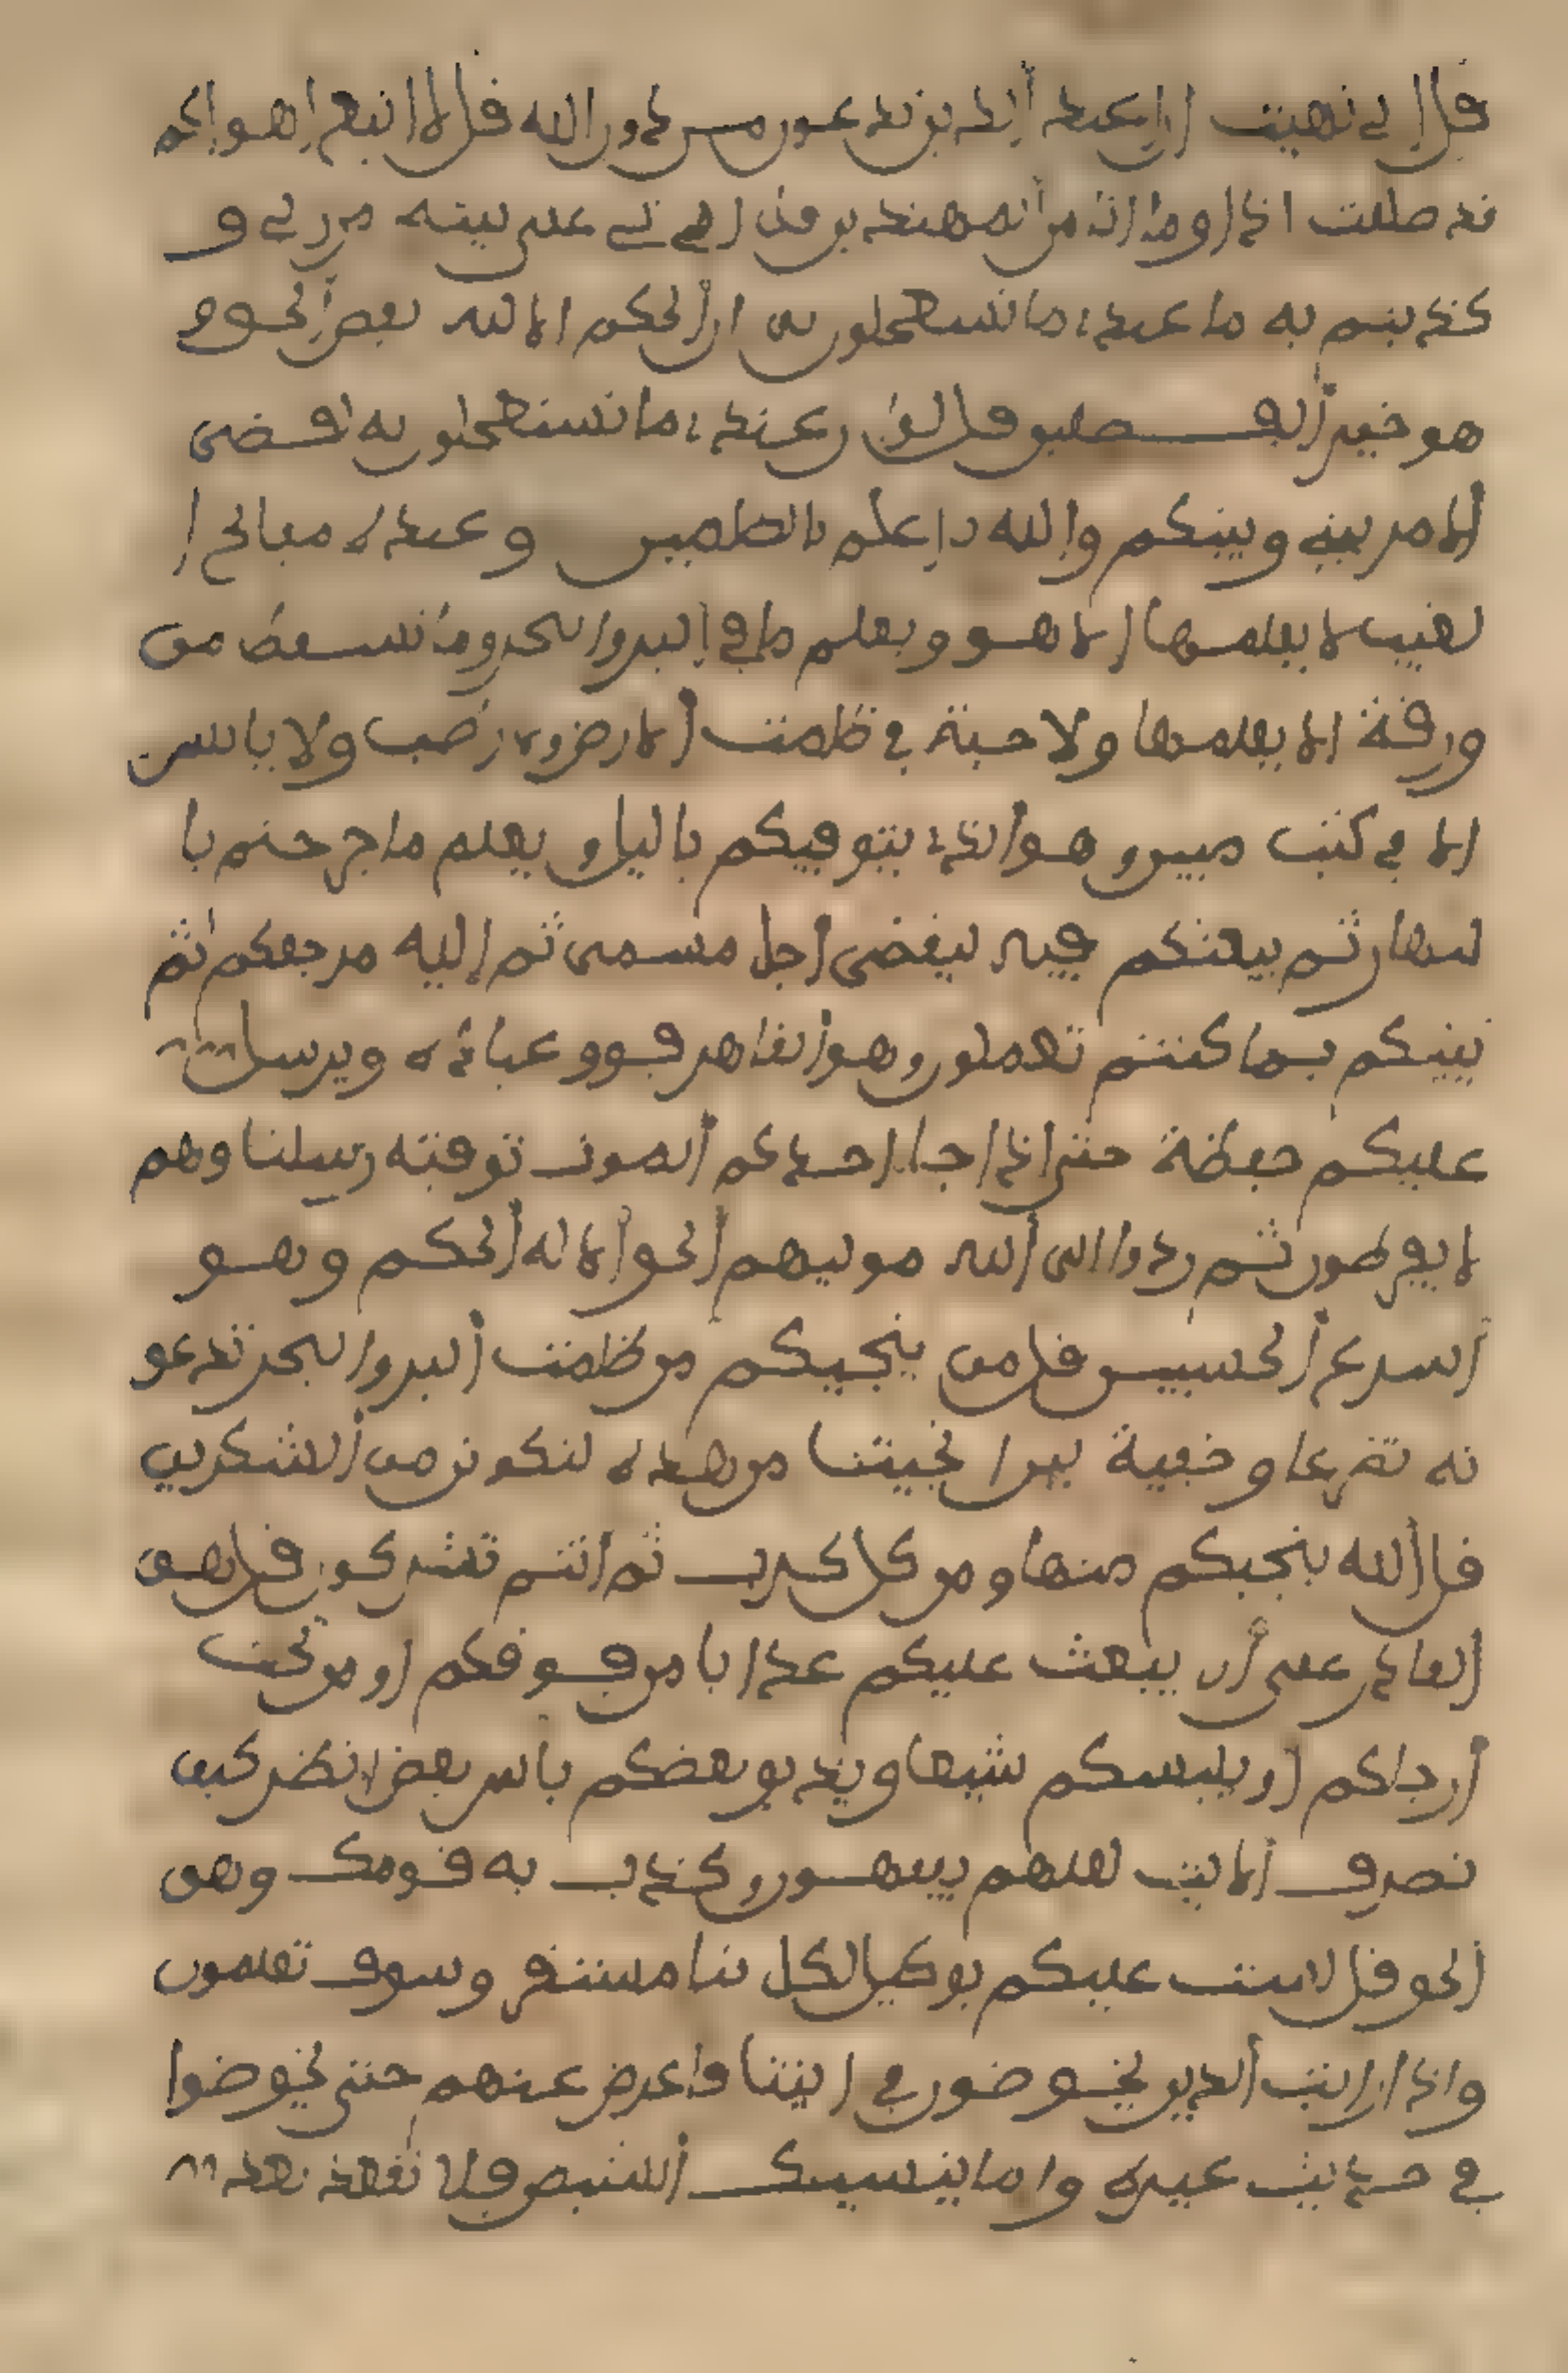 قل اني نهيت ان اعبد الذين تدعون من دون الله قل لا اتبع اهواكم
قد ضللت اذا وما انا من المهتدين قل اني على بينة من ربي و
كذبتم به ما عندي ما تستعجلون به ان الحكم الا لله يقص الحق و
هو خير الفصلين قل لو ان عندي ما تستعجلون به لقضي
الامر بيني وبينكم والله اعلم بالظلمين وعنده مفاتح ا
لغيب لا يعلمها الا هو ويعلم ما في البر والبحر وما تسقط من
ورقة الا يعلمها ولا حبة في ظلمت الارض ولا رطب ولا يابس
الا في كتب مبين وهو الذي يتوفيكم باليل ويعلم ما جرحتم با
لنهار ثم يبعثكم فيه ليقضى اجل مسمى ثم اليه مرجعكم ثم
ينبيكم بما كنتم تعملون وهو القاهر فوق عباده ويرسل
عليكم حفظة حتى اذا جا احدكم الموت توفته رسلنا وهم
لا يفرطون ثم ردوا الى الله موليهم الحق الا له الحكم وهو
اسرع الحسبين قل من ينجيكم من ظلمت البر والبحر تدعو
نه تضرعا وخفية لين انجيتنا من هذه لنكونن من الشكرين
قل الله ينجيكم منها ومن كل كرب ثم انتم تشركون قل هو
القادر على ان يبعث عليكم عذابا من فوقكم او من تحت
ارجلكم او يلبسكم شيعا ويذيق بعضكم باس بعض انظر كيف
نصرف الايت لعلهم يفقهون وكذب به قومك وهو
الحق قل لست عليكم بوكيل لكل نبا مستقر وسوف تعلمون
واذا رايت الذين يخوضون في ايتنا فاعرض عنهم حتى يخوضوا
في حديث غيره واما ينسينك الشيطن فلا تقعد بعد